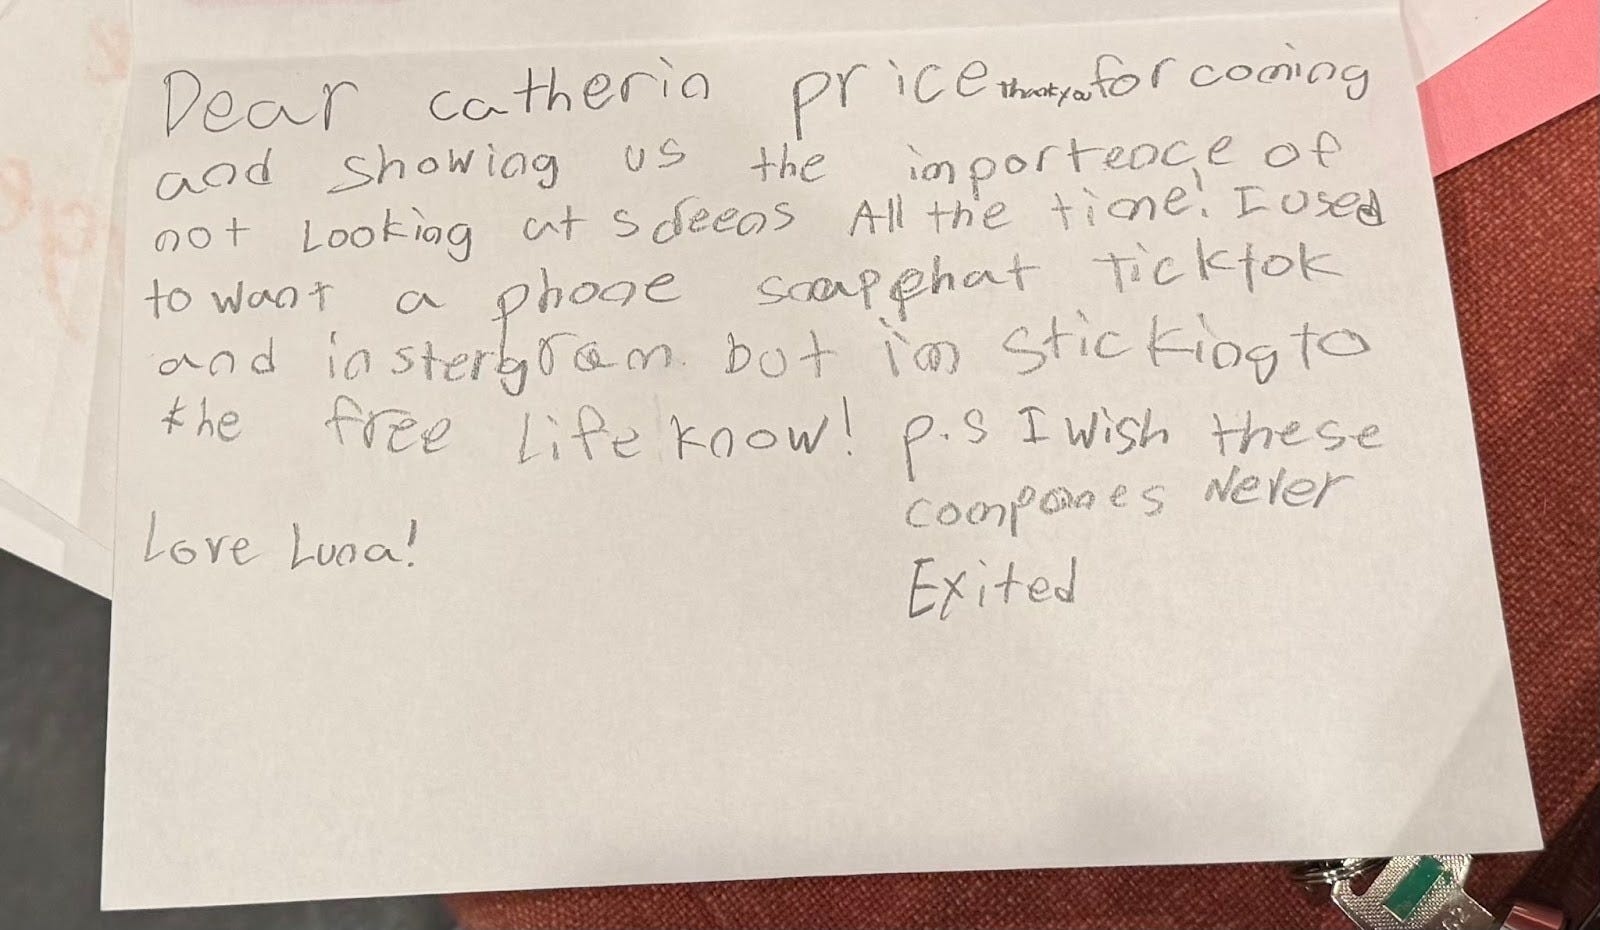 Dear catherin price thank you for coming
and showing us the importence of
not Looking at screens All the time! I used
to want a phone snapchat Ticktok
and instergram. but i'm sticking to
the free Life know! p.s I Wish these
companes Never
Exited
Love Luna!